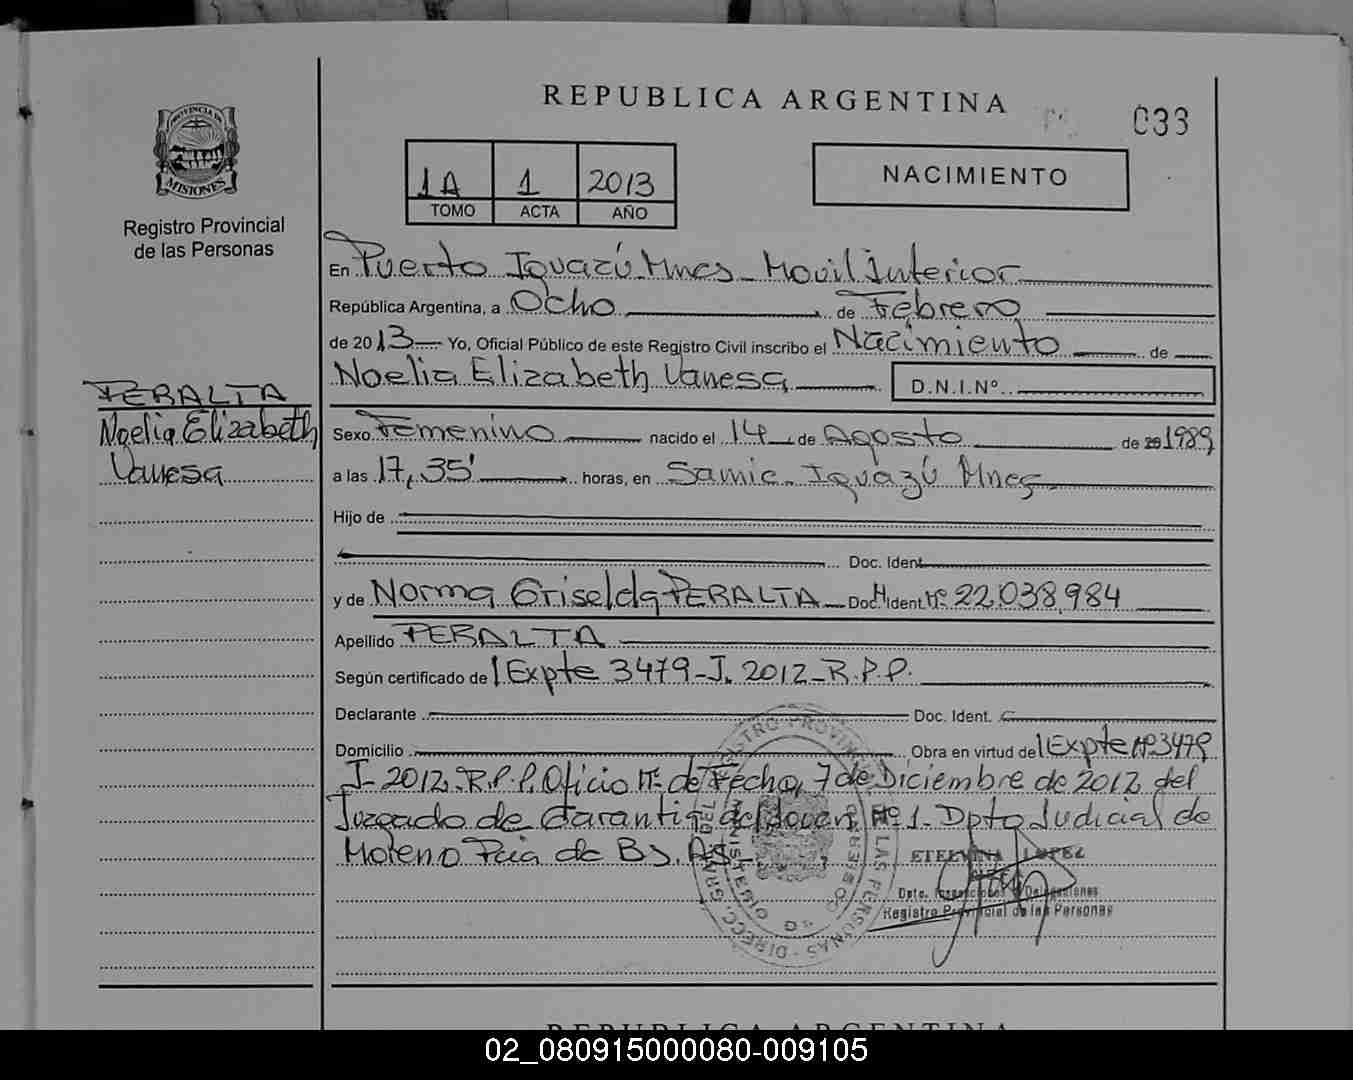 REPUBLICA ARGENTINA
033
PROVINCIA DE
MISIONES
Registro Provincial
de las Personas
1A 1 2013
TOMO ACTA AÑO
NACIMIENTO
En Puerto Iguazú Mnes - Movil Interior
República Argentina, a Ocho de Febrero
de 2013 Yo, Oficial Público de este Registro Civil inscribo el Nacimiento de
Noelia Elizabeth Vanesa D.N.I.Nº
PERALTA
Noelia Elizabeth
Vanesa
Sexo Femenino nacido el 14 de Agosto de 1989
a las 17,35' horas, en Samic. Iguazú Mnes
Hijo de
Doc. Ident.
y de Norma Griselda PERALTA Doc. Ident Nº 22.038.984
Apellido PERALTA
Según certificado de Expte 3479-J. 2012-R.P.P.
Declarante Doc. Ident.
Domicilio Obra en virtud del Expte Nº 3479
J- 2012-R.P.P. Oficio Nº de Fecha 7 de Diciembre de 2012 del
Juzgado de Garantia del Joven Nº 1- Dpto Judicial de
Moreno Pcia de Bs. As-
ETELVINA LOPEZ
Dpto. Inspecciones Delegaciones
Registro Provincial de las Personas
REPUBLICA ARGENTINA
02_080915000080-009105